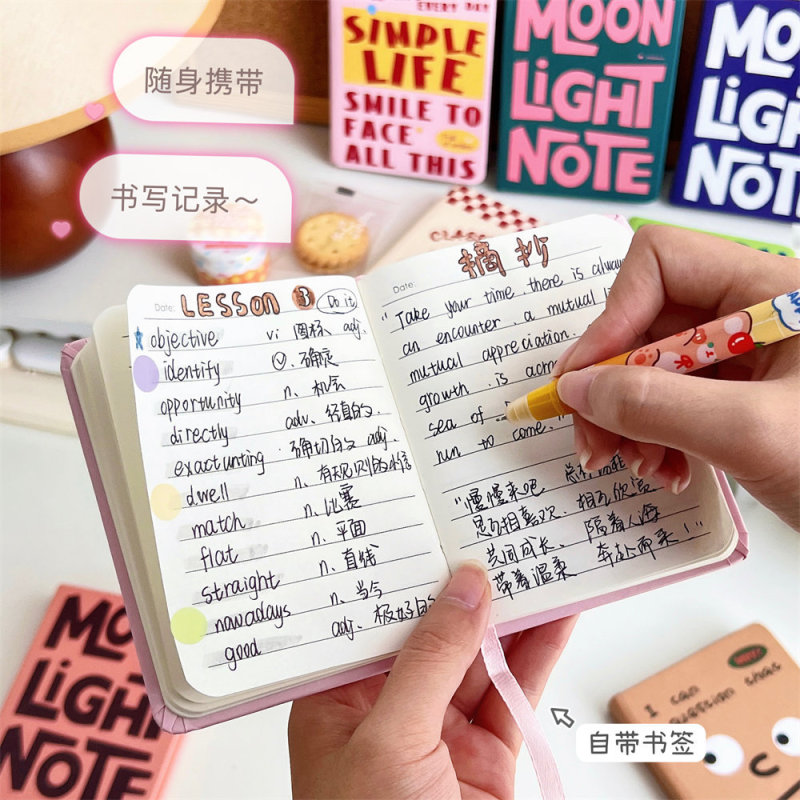 随身携带
书写记录~
EVERY DAY
SIMPLE
LIFE
SMILE TO
FACE
ALL THIS
MOON
LIGHT
NOTE
MOON
LIGHT
NOTE
Date:
LESSON 3 Do it
objective vi 图标 adj.
identify 确定
opportunity n. 机会
directly adv. 径直的.
exactunting 确切的 adj.
dwell n. 有规则的
match n. 比赛
flat n. 平面
straight n. 直线
nawadays n、当今
good adj. 极好的
Date:
摘抄
"Take your time, there is always
an encounter, a mutual
mutual appreciation.
growth is
sea of
run to come.
"慢慢来吧 总有
是互相喜欢、相互欣赏
共同成长、隔着人海
带着温柔 奔赴而来!"
MOON
LIGHT
NOTE
I can
自带书签